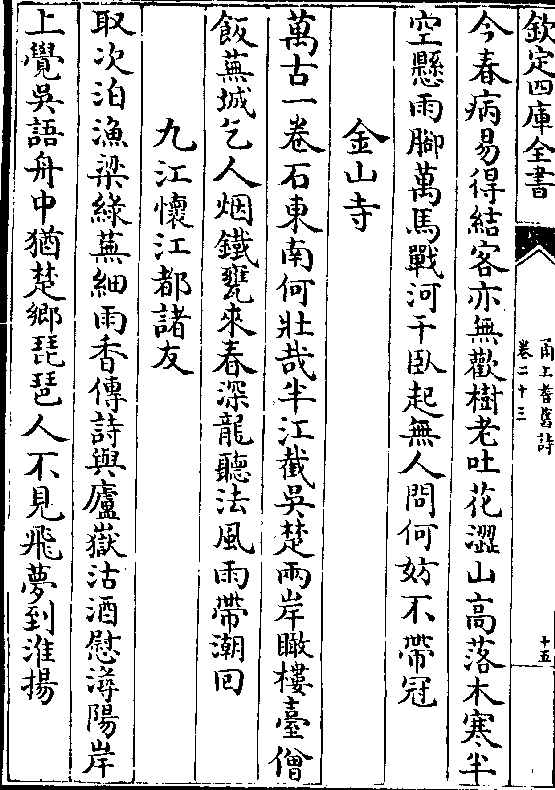 欽定四庫全書
甬上耆舊詩
卷二十三
十五
今春病易得結客亦無歡樹老吐花澀山高落木寒半
空懸雨腳萬馬戰河干臥起無人問何妨不帶冠
金山寺
萬古一卷石東南何壯哉半江截吳楚兩岸瞰樓臺僧
飯蕪城乞人烟鐵甕來春深龍聽法風雨帶潮回
九江懷江都諸友
取次泊漁梁綠蕪細雨香傳詩與廬嶽沽酒慰潯陽岸
上覺吳語舟中猶楚鄉琵琶人不見飛夢到淮揚